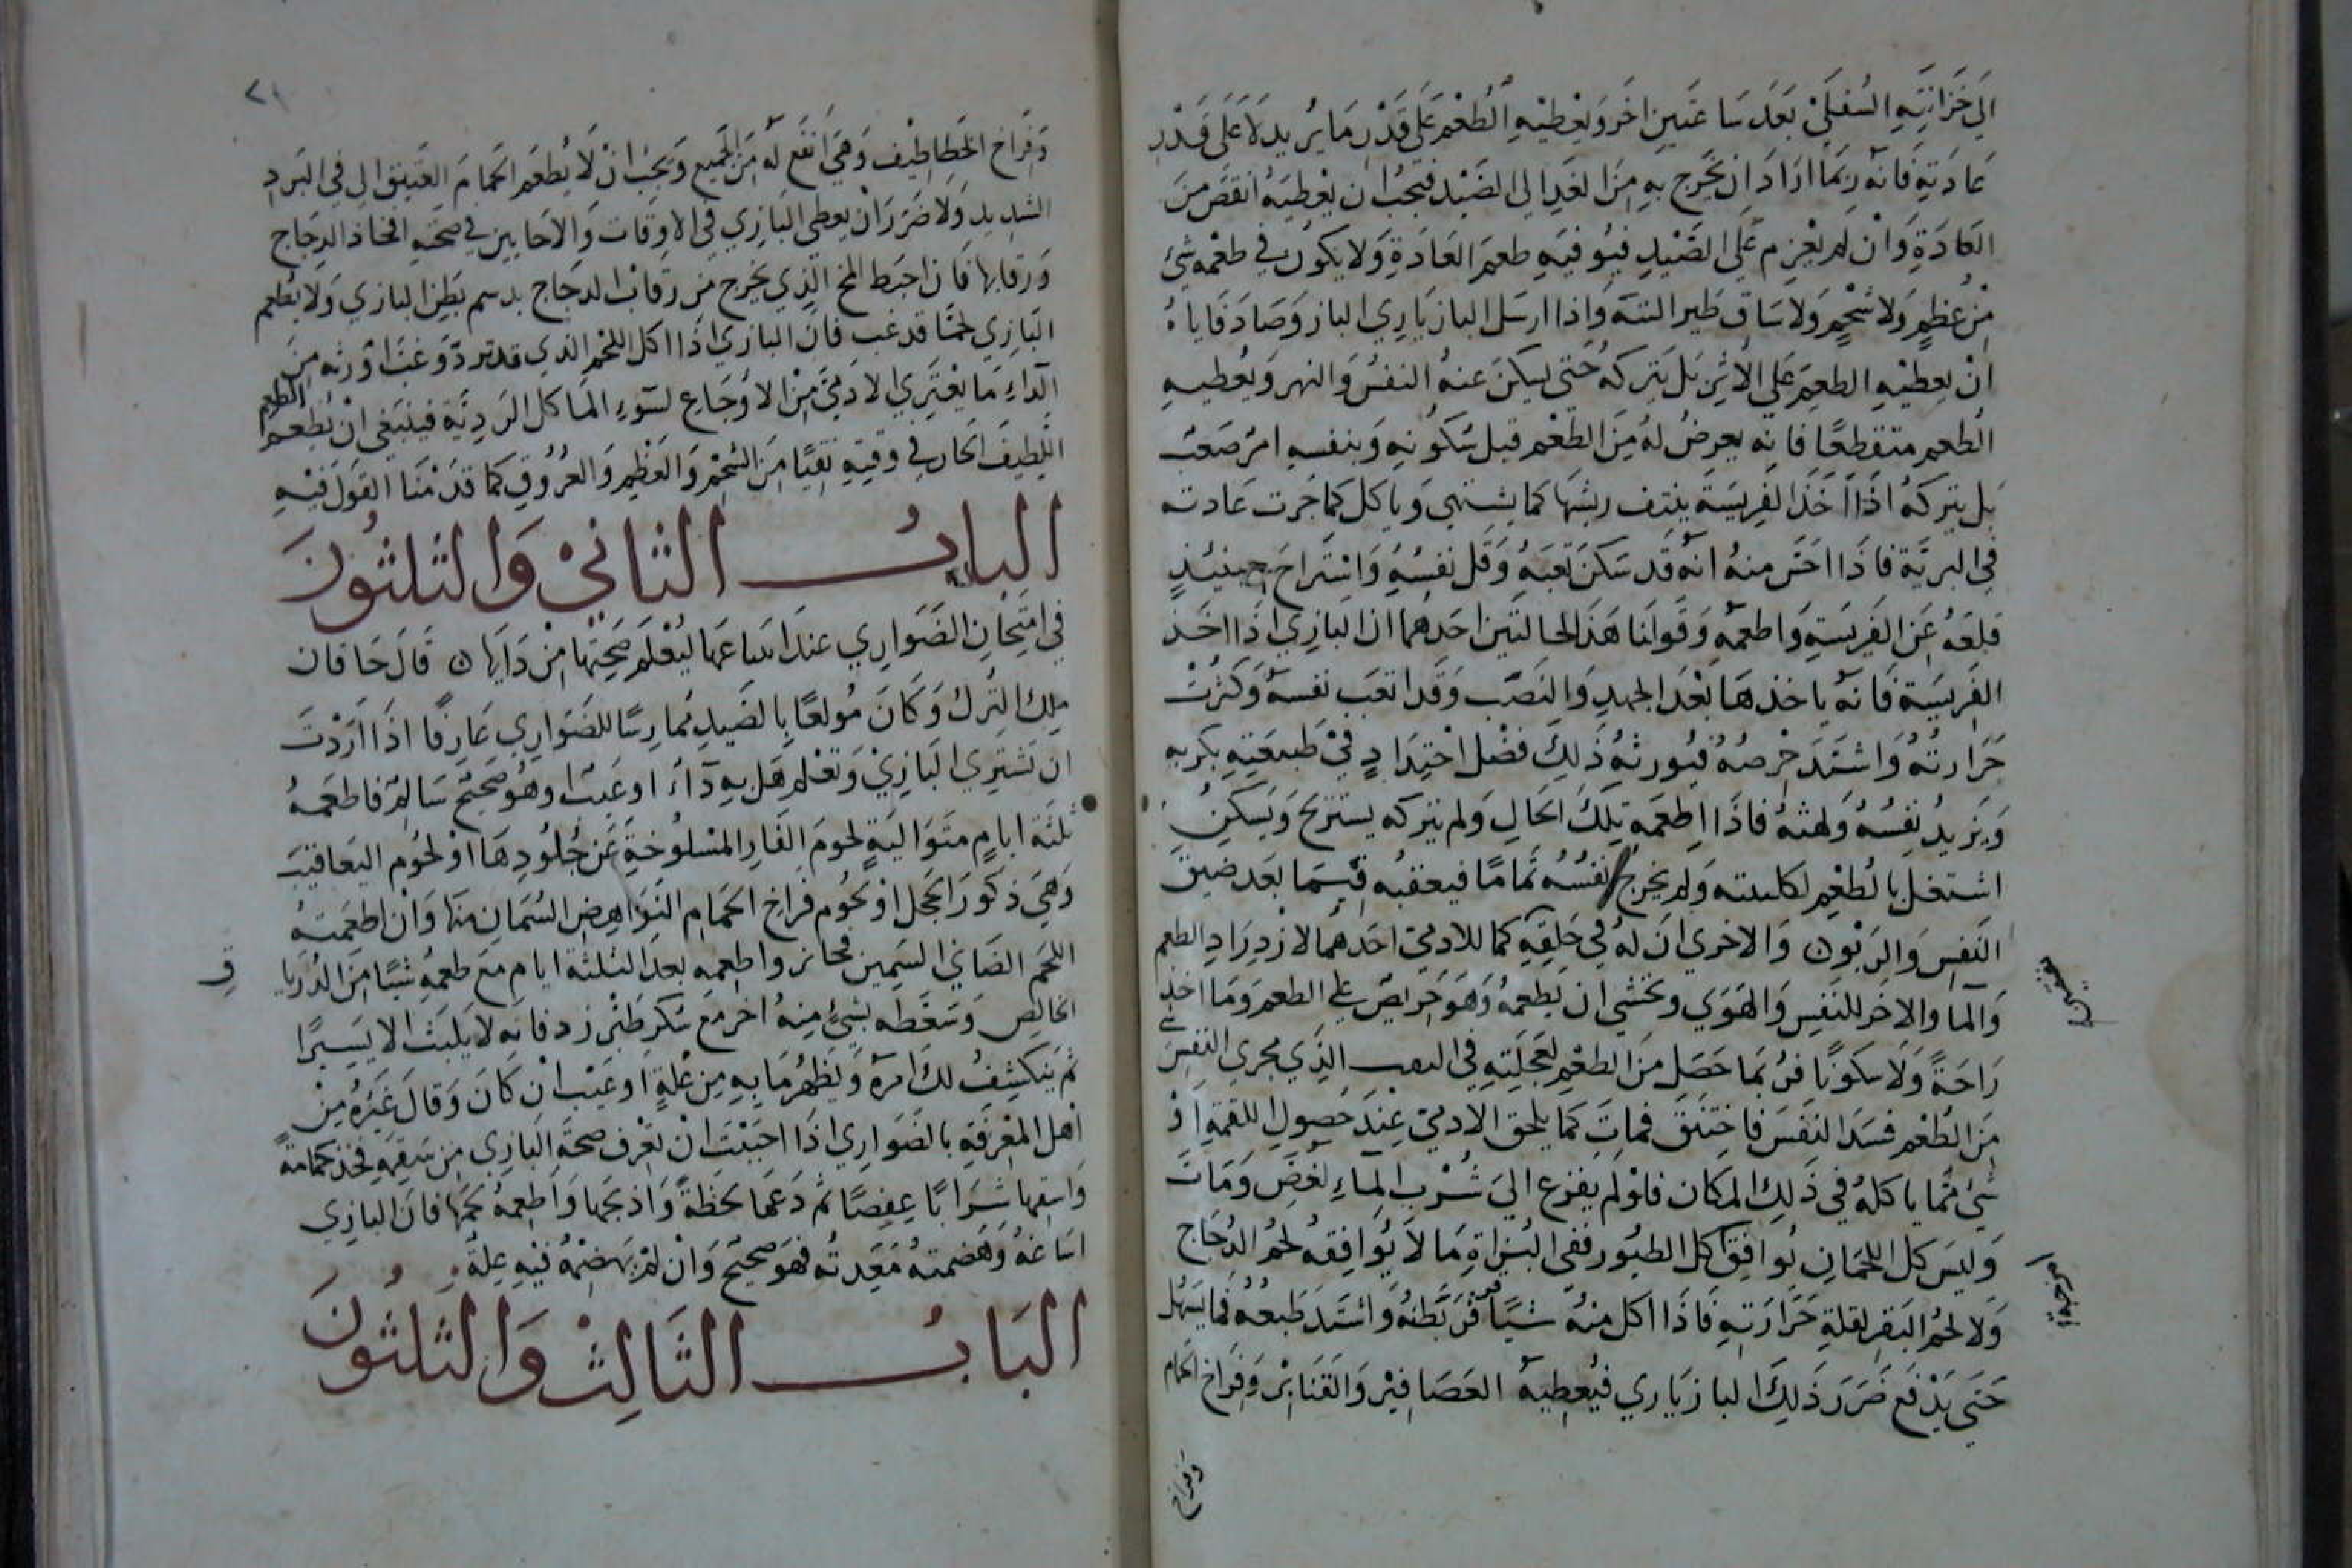 الى خَزَانَتِهِ السُفلَى بَعدَ سَاعَتَين اخَر وَيُعْطيْهِ الطُعْم عَلَى قَدْرِ مَا يُريد لَا عَلى قَدْرِ
عَادَتِهِ فَانّه ربَمَا ارَادَ ان يَخْرجَ بِهِ مِنَ الغَدِ الى الصَيْد فيَجبُ ان يُعْطِيَهُ انقَصَ منَ
العَادَةِ وَانْ لم يَعْزم عَلَى الصَيْدِ فيُوفيَهِ طعمَ العَادَةِ وَلا يكوُن في طعْمِه شئ
مِنْ عُظمٍ وَلا شَحْمٍ وَلا سَاق طَير البتة وَاذا ارسَل البازيَاري الباز وَصَادَ فَاياهُ
انْ يعطيْهِ الطعمَ عَلى الاثرِ بَل يَتركهُ حَتى يَسكنَ عنهُ النفسُ وَالنهر وَيُعطيهِ
الطعم متقطعًا فانه يعرضُ لهُ مِنَ الطعْم قبل سَكُونهِ وَبنفسهِ امرٌ صَعْب
بَل يتركهُ اذَا اخَذَ الفرِيسَةَ ينتف ريشهَا كما يشتهى وَياكل كمَا جَرت عَادته
في البريَّة فاذَا احَسّ منهُ انه قَد سَكنَ تعَبَهُ وَقَل نفسُهُ وَاسْترَاحَ حينئذٍ
قلعَهُ عَن الفَريسَةِ وَاطعمَه وَقَولنَا هَذَا لحالتَين احَدهما ان البَازي اذَا اخَذ
الفريَسَة فَانه ياخذهَا بَعْدَ الجهدِ وَالنَصَب وَقَد اتعَب نفسه وَكثرَتْ
حَرَارتهُ وَاشتَدَ حْرصُهُ فيُورثهُ ذَلكَ فضْل احْتِدَادٍ فىْ طَبيعَتِهِ بكربهِ
وَيَزيدُ نفِسُهُ وَلهثهُ فاذَا اطعَمَه بتلكَ الحَالِ وَلم يتركه يستريحَ وَيَسكنُ
اشتغل بالطعْم لكلبته وَلم يَخرج نفسُهُ تمامًا فيعقبهُ قَيسَما بَعد ضيقَ
النَفسِ وَالرَبْون وَالاخرى انَ لهُ في حَلقهِ كما للادمىّ احَدهُما لازدرَادِ الطعم
وَالمآ والاخَر للنَفسِ وَالهَوَى وَتخشى ان يُطعمَهُ وَهوَ حَريصٌ على الطعمَ وَمَا اخذ
رَاحَةً وَلَا سَكونًا فرُبَما حَصَل مِنَ الطعْم لعَجَلتهِ في الذي مجرى النفسَ
مَن الطُعْم فسَدَ النَفسَ فاختَنَق فمَاتَ كمَا يلحق الادمىّ عِندَ حَصُولِ اللقمةِ اوْ
شئ مِمّا ياكلهُ في ذَلكَ المكان فلوْلم يفزع الىَ شُرْبِ المَاءِ لغُصَّ وَمَاتَ
وَليَس كل اللحمَانِ يُوافق كل الطيُور ففى البُزاةِ مَا لاَ يُوَافِقهُ لحُم الدُجَاج
وَلا لحُم البَقر لقلةِ حَرَارَتهِ فَاذَا اكل منهُ شيًا قرَّ بَطنهُ وَاشتدَ طَبعُهُ فما يسَهُل
حَتى يَدْفَع ضَرَر ذَلِكَ البازيَاري فيُعطِيهَ العَصَافِيْر وَالقنَابْر وَفرَاخَ الحَمام
وفراخ
٧١
وَفَرَاخ الخطاطِيْف وَهيَ انفَع لهُ مِنَ الجَميع وَيَجبْ انْ لَا يُطعَم الحَمامَ العَتيق الا في البَردِ
الشديد وَلَا ضَرَرَ انْ يعطى البَازي في الاوقات وَالاحَايين في صحَّتهِ افخاذ الدجَاج
وَرقابها فَان احبَط المخ الذي يَخرج من رقاب الدجَاج يدسم بَطن البازي وَلا يُطعِم
البَازي لحمًا قد غبَ فانَ البازي اذَا اكل اللحم الذي قد تردّ وَغبَّ اوْرثه منَ
الدآءِ مَا يعْتَري الادَمىَّ مِنْ الاوُجَاع لسوءِ المآكل الرَدِئة فيَنبَغي انْ يُطعم الطعم
اللطيفَ الحَار في وَقتِهِ نقيًا مِنَ الشحْم وَالعَظمِ وَالعُروُق كما قدَمْنَا القوَل فيْهِ
البابُ الثانيْ وَالثلثوُنَ
في امْتِحانِ الضَوَاري عندَ ابتياعهَا ليُعْلمَ صَحتهَا مِنْ دَآيها ن قَالَ خَاقان
ملِك التركُ وَكَانَ مُولعًا بالصَيدِ مُمارسًا للضَواري عَارفًا اذَا ارَدْتَ
ان تشتري البَازيْ وَتعْلم هَل بهِ دَآءٌ اوعَيبٌ او هُو صَحيحٌ سَالمٌ فاطعمهُ
ثلثة ايامٍ متوَاليَةٍ لحومَ الفَارِ المسْلوُخةِ عَن جُلوُدِهَا اوْ لحُوم اليَعاقيبَ
وَهيَ ذكوُر الحجل اوْ لحُوم فرَاخِ الحمَام النَوَاهِض السُمَانِ منهَا وَانْ اطعَمتهُ
اللحَم الضَانيْ السَمِين فجَائز واطعمهِ بعد الثلثة ايام مَع طعمهِ شيًا مِنَ الدُرَيا
الخالِص وَسَعّطه بشئ منهُ اخرمَع سَكر طَبَرزد فانه لا يَلبَثُ الا يَسيرًا
ثم يَنكشِفُ لك امرَه وَيَظهُرمَا بهِ مِن علةٍ اوعَيْب انْ كانَ وَقالَ غَيْرهُ مِنْ
اهْل المعْرفَةِ بالضَوَاري اذَا احبَبْتَ انْ تعْرف صحَةَ البَازي مِن سَقمِهِ فخذ حمَامَةً
وَاسْقِهَا شرَابًا عِفِصًا ثم دَعهَا لحَظةً وَاذبحَها وَاطعمهُ لحمَها فانَ البازي
اسَاغهُ وَهَضمتهُ مَعَدتُه فهوَ صَحيحٌ وَانْ لمْ يَهضِمْهُ فيْهِ عِلةٌ
البَابُ الثَالِثُ وَالثلثوُنَ